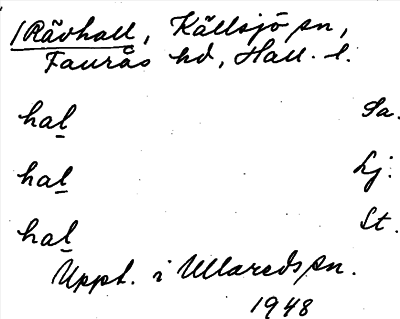 /Rävhall, Källsjö sn,
Faurås hd, Hall. l.
hal Sa.
hal Lj.
hal St.
Uppt. i Ullareds sn.
1948